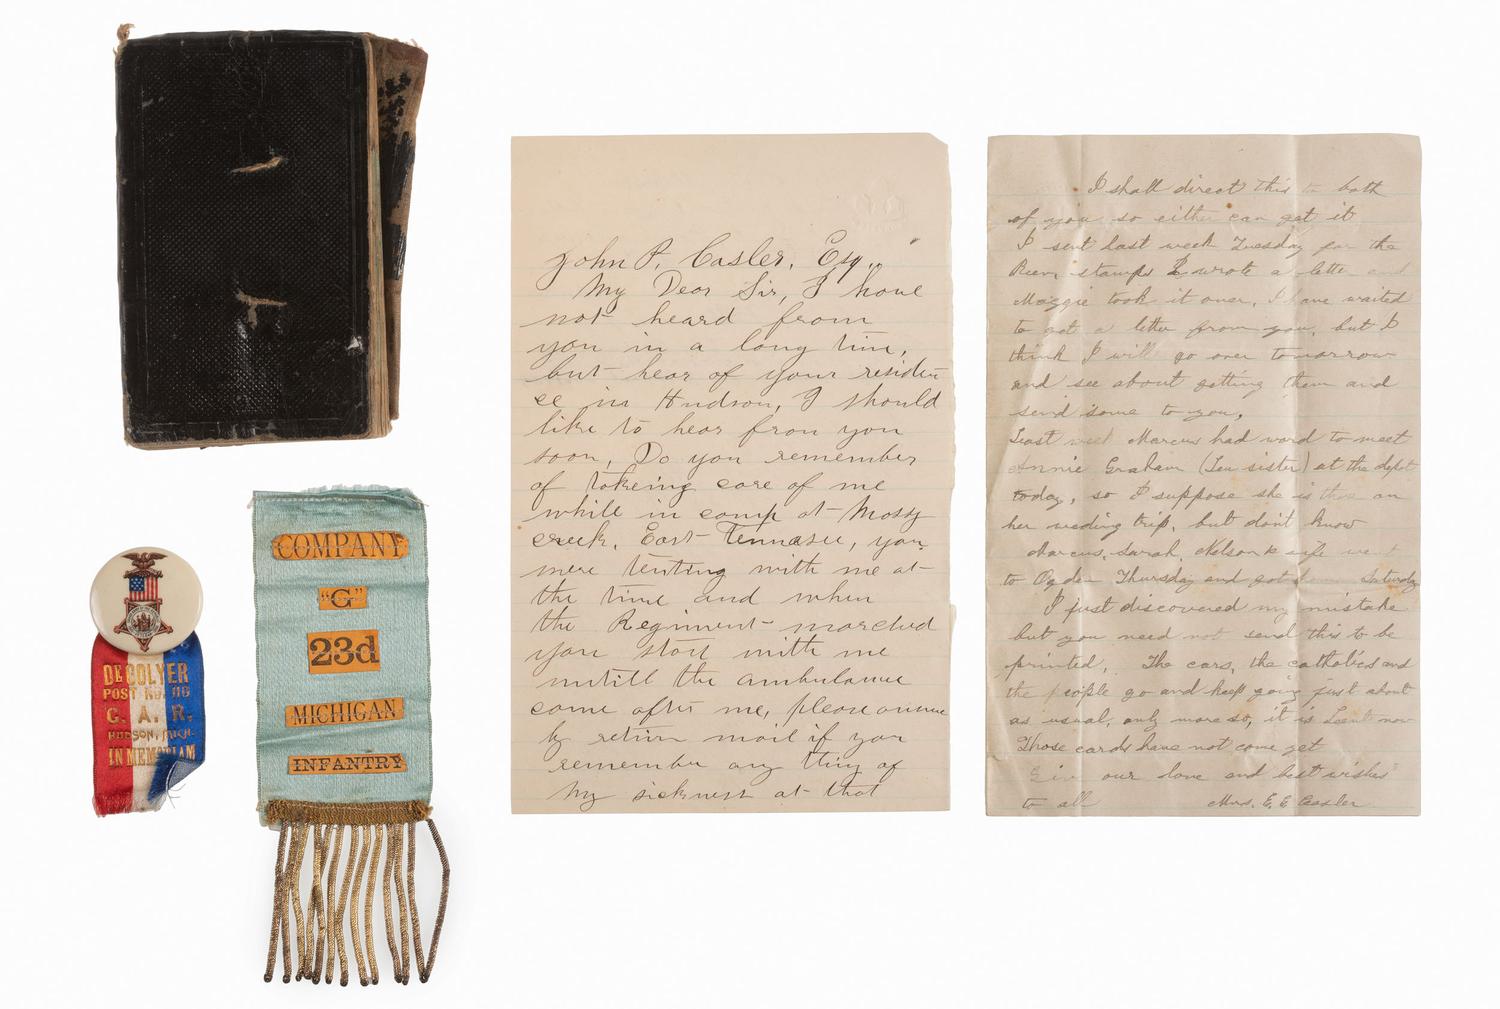 DE GOLYER
POST NO. 116
G. A. R.
HUDSON, MICH.
IN MEMORIAM
COMPANY
"G"
23d
MICHIGAN
INFANTRY
John P. Casler, Esq.,
My Dear Sir, I have
not heard from
you in a long time,
but hear of your residen
ce in Hudson, I should
like to hear from you
soon, Do you remember
of takeing care of me
while in camp at Mossy
creek, East Tennasee, you
were tenting with me at
the time and when
the Regiment marched
you staid with me
untill the ambulance
come after me, please answer
by return mail if you
remember any thing of
my sickness at that
I shall direct this to both
of you so either can get it
I sent last week Tuesday for the
stamps I wrote a letter and
Maggie took it over, I have waited
to get a letter from you, but I
think I will go over tomorrow
and see about getting them and
send some to you,
Last week Marcus had word to meet
Annie Graham (Lew sister) at the depot
today, so I suppose she is there on
her weding trip, but dont know
Marcus, Sarah, Nelson & wife went
to Ogden Thursday and got home Saturday
I just discovered my mistake
but you need not send this to be
printed, The cars, the catholics and
the people go and keep going just about
as usual, only more so, it is Lent now
Those cards have not come yet
Give our love and best wishes
to all Mrs. E. E. Casler